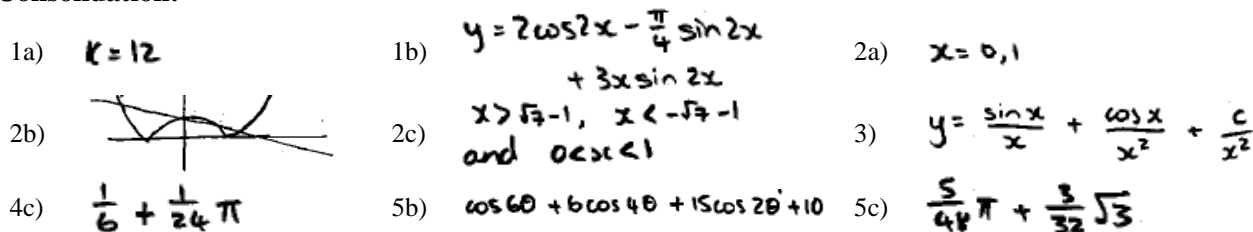 1a) K = 12 1b) y = 2cos2x - π/4 sin2x + 3x sin 2x 2a) x = 0, 1
2b) 2c) x > √7-1, x < -√7-1 and 0<x<1 3) y = sin x/x + cos x/x² + c/x²
4c) 1/6 + 1/24 π 5b) cos6θ + 6cos4θ + 15cos2θ + 10 5c) 5/48 π + 3/32 √3